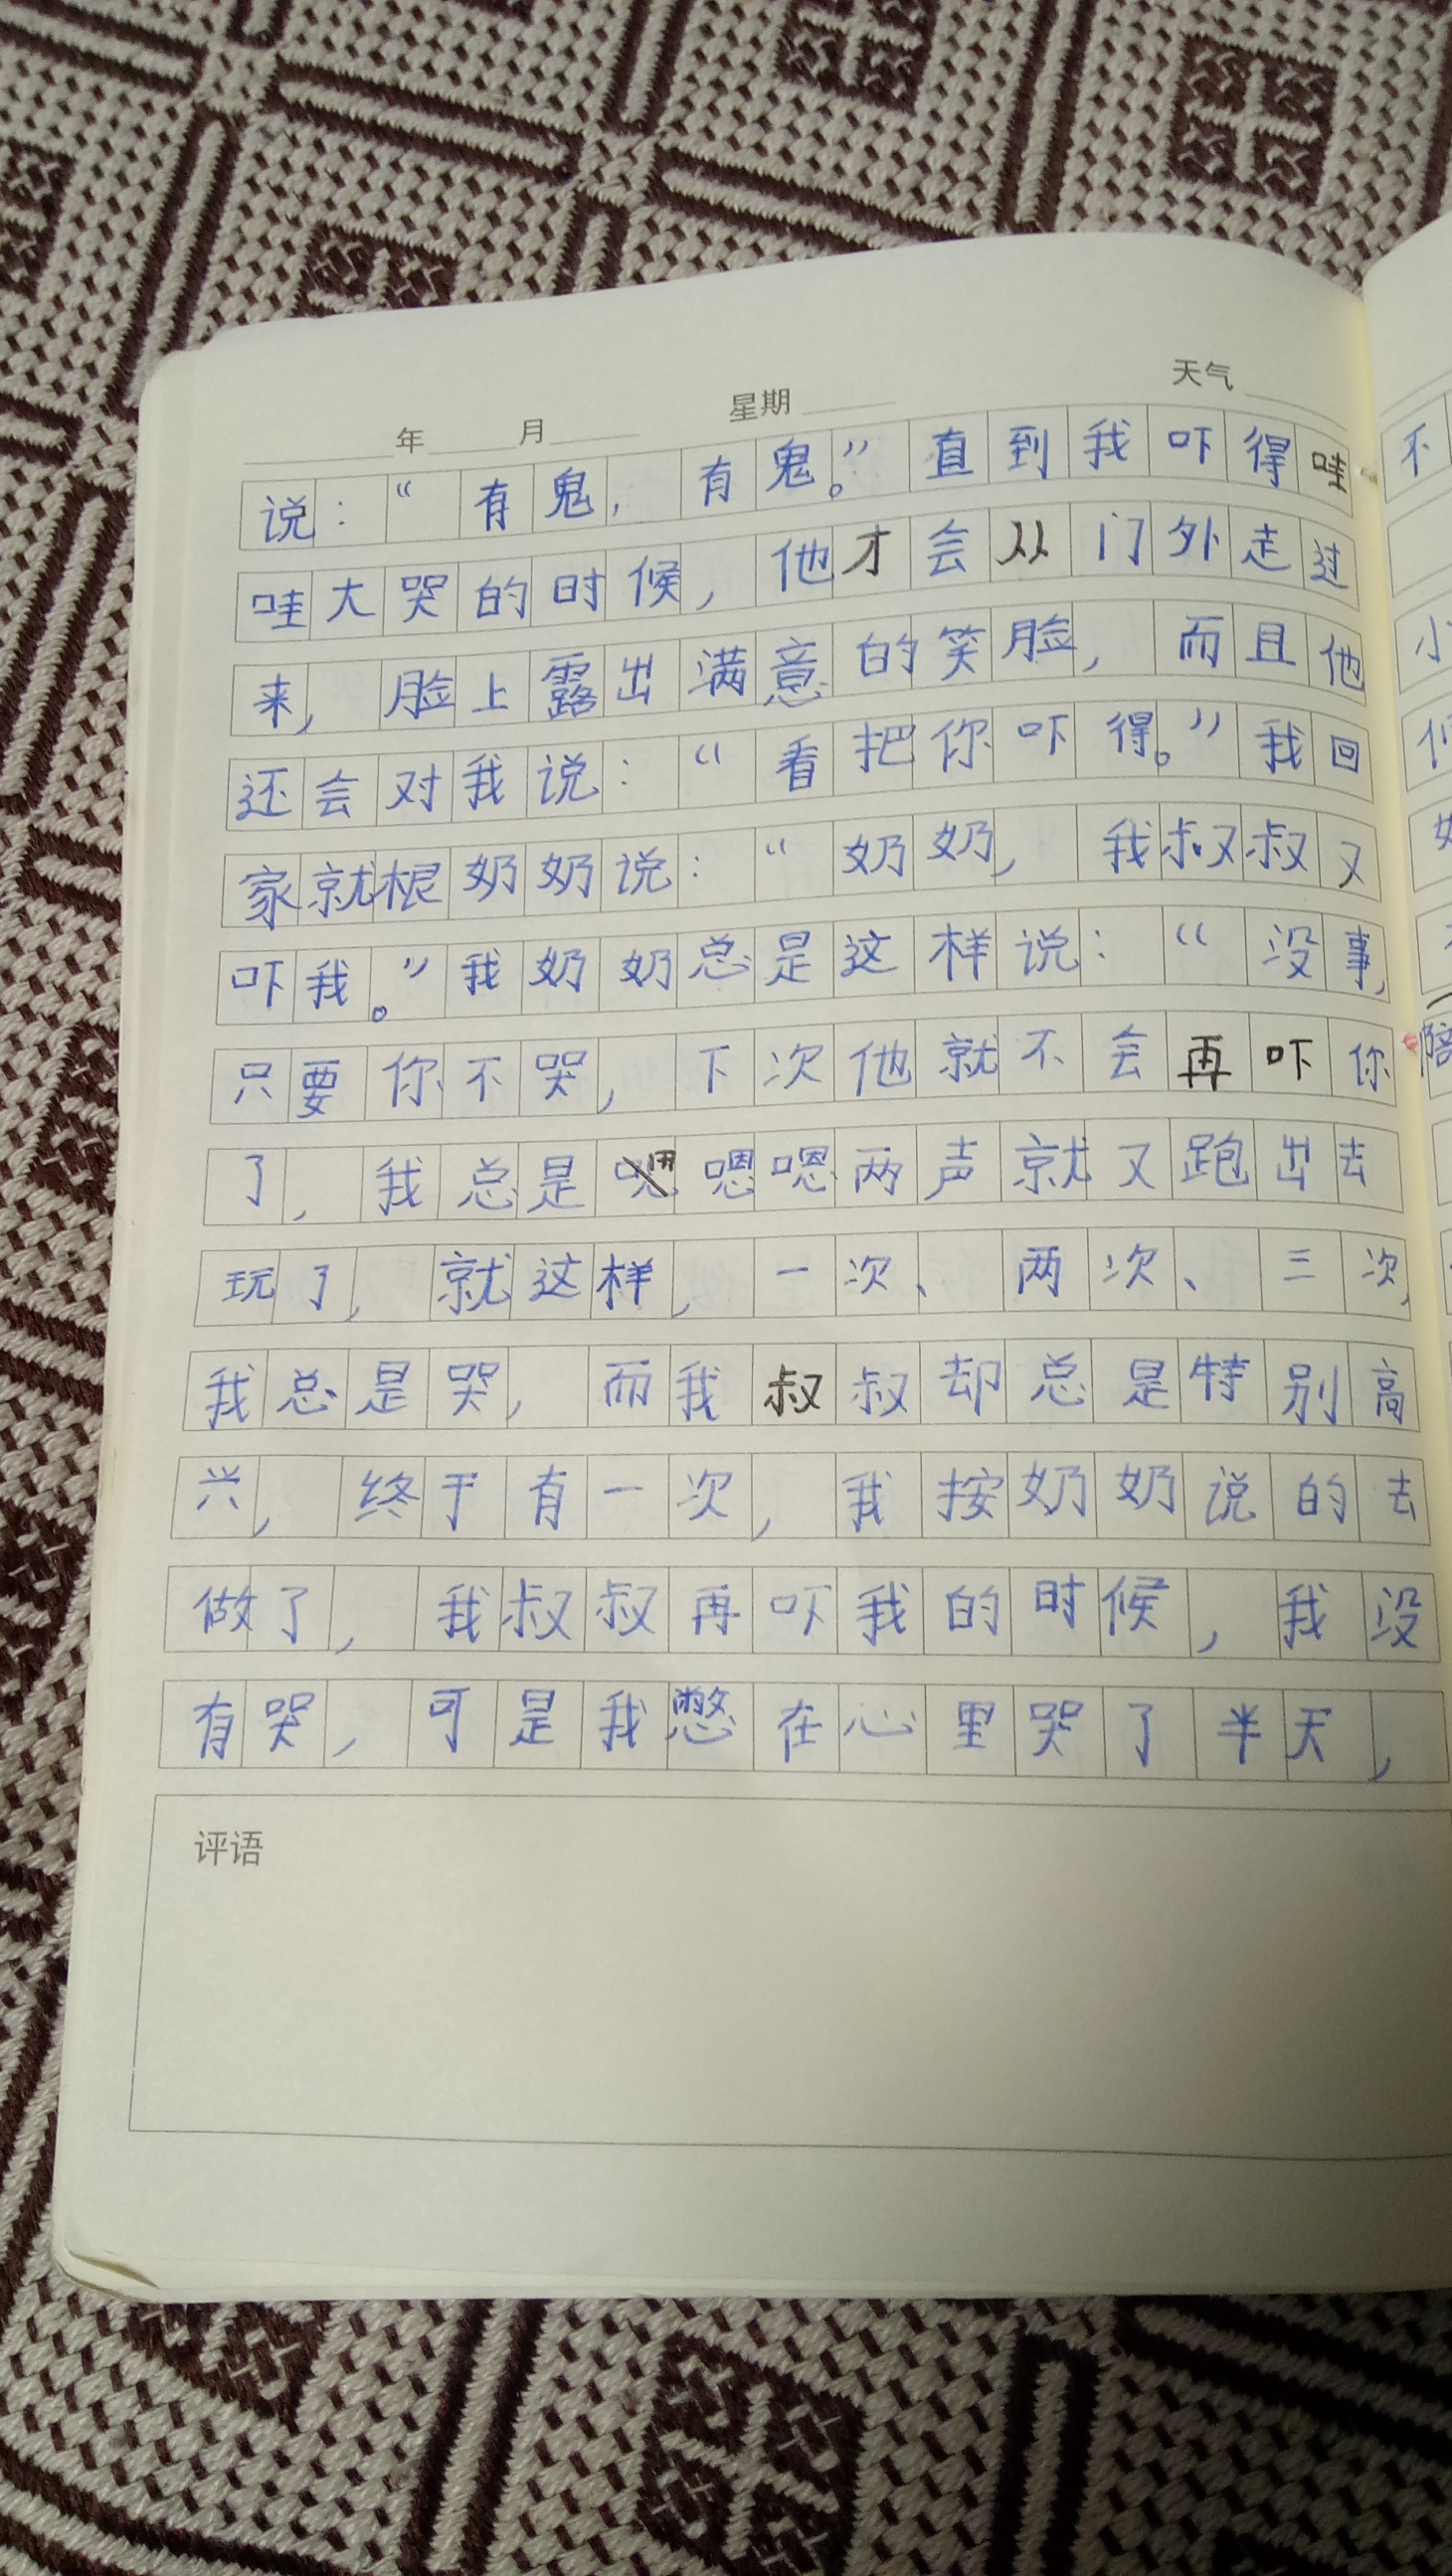 年 月 星期 天气
说：“有鬼，有鬼。”直到我吓得哇
哇大哭的时候，他才会从门外走过
来，脸上露出满意的笑脸，而且他
还会对我说：“看把你吓得。”我回
家就根奶奶说：“奶奶，我叔叔又
吓我。”我奶奶总是这样说：“没事，
只要你不哭，下次他就不会再吓你
了，我总是用嗯嗯两声就又跑出去
玩了，就这样，一次、两次、三次，
我总是哭，而我叔叔却总是特别高
兴，终于有一次，我按奶奶说的去
做了，我叔叔再吓我的时候，我没
有哭，可是我憋在心里哭了半天，
评语
不
小
陪